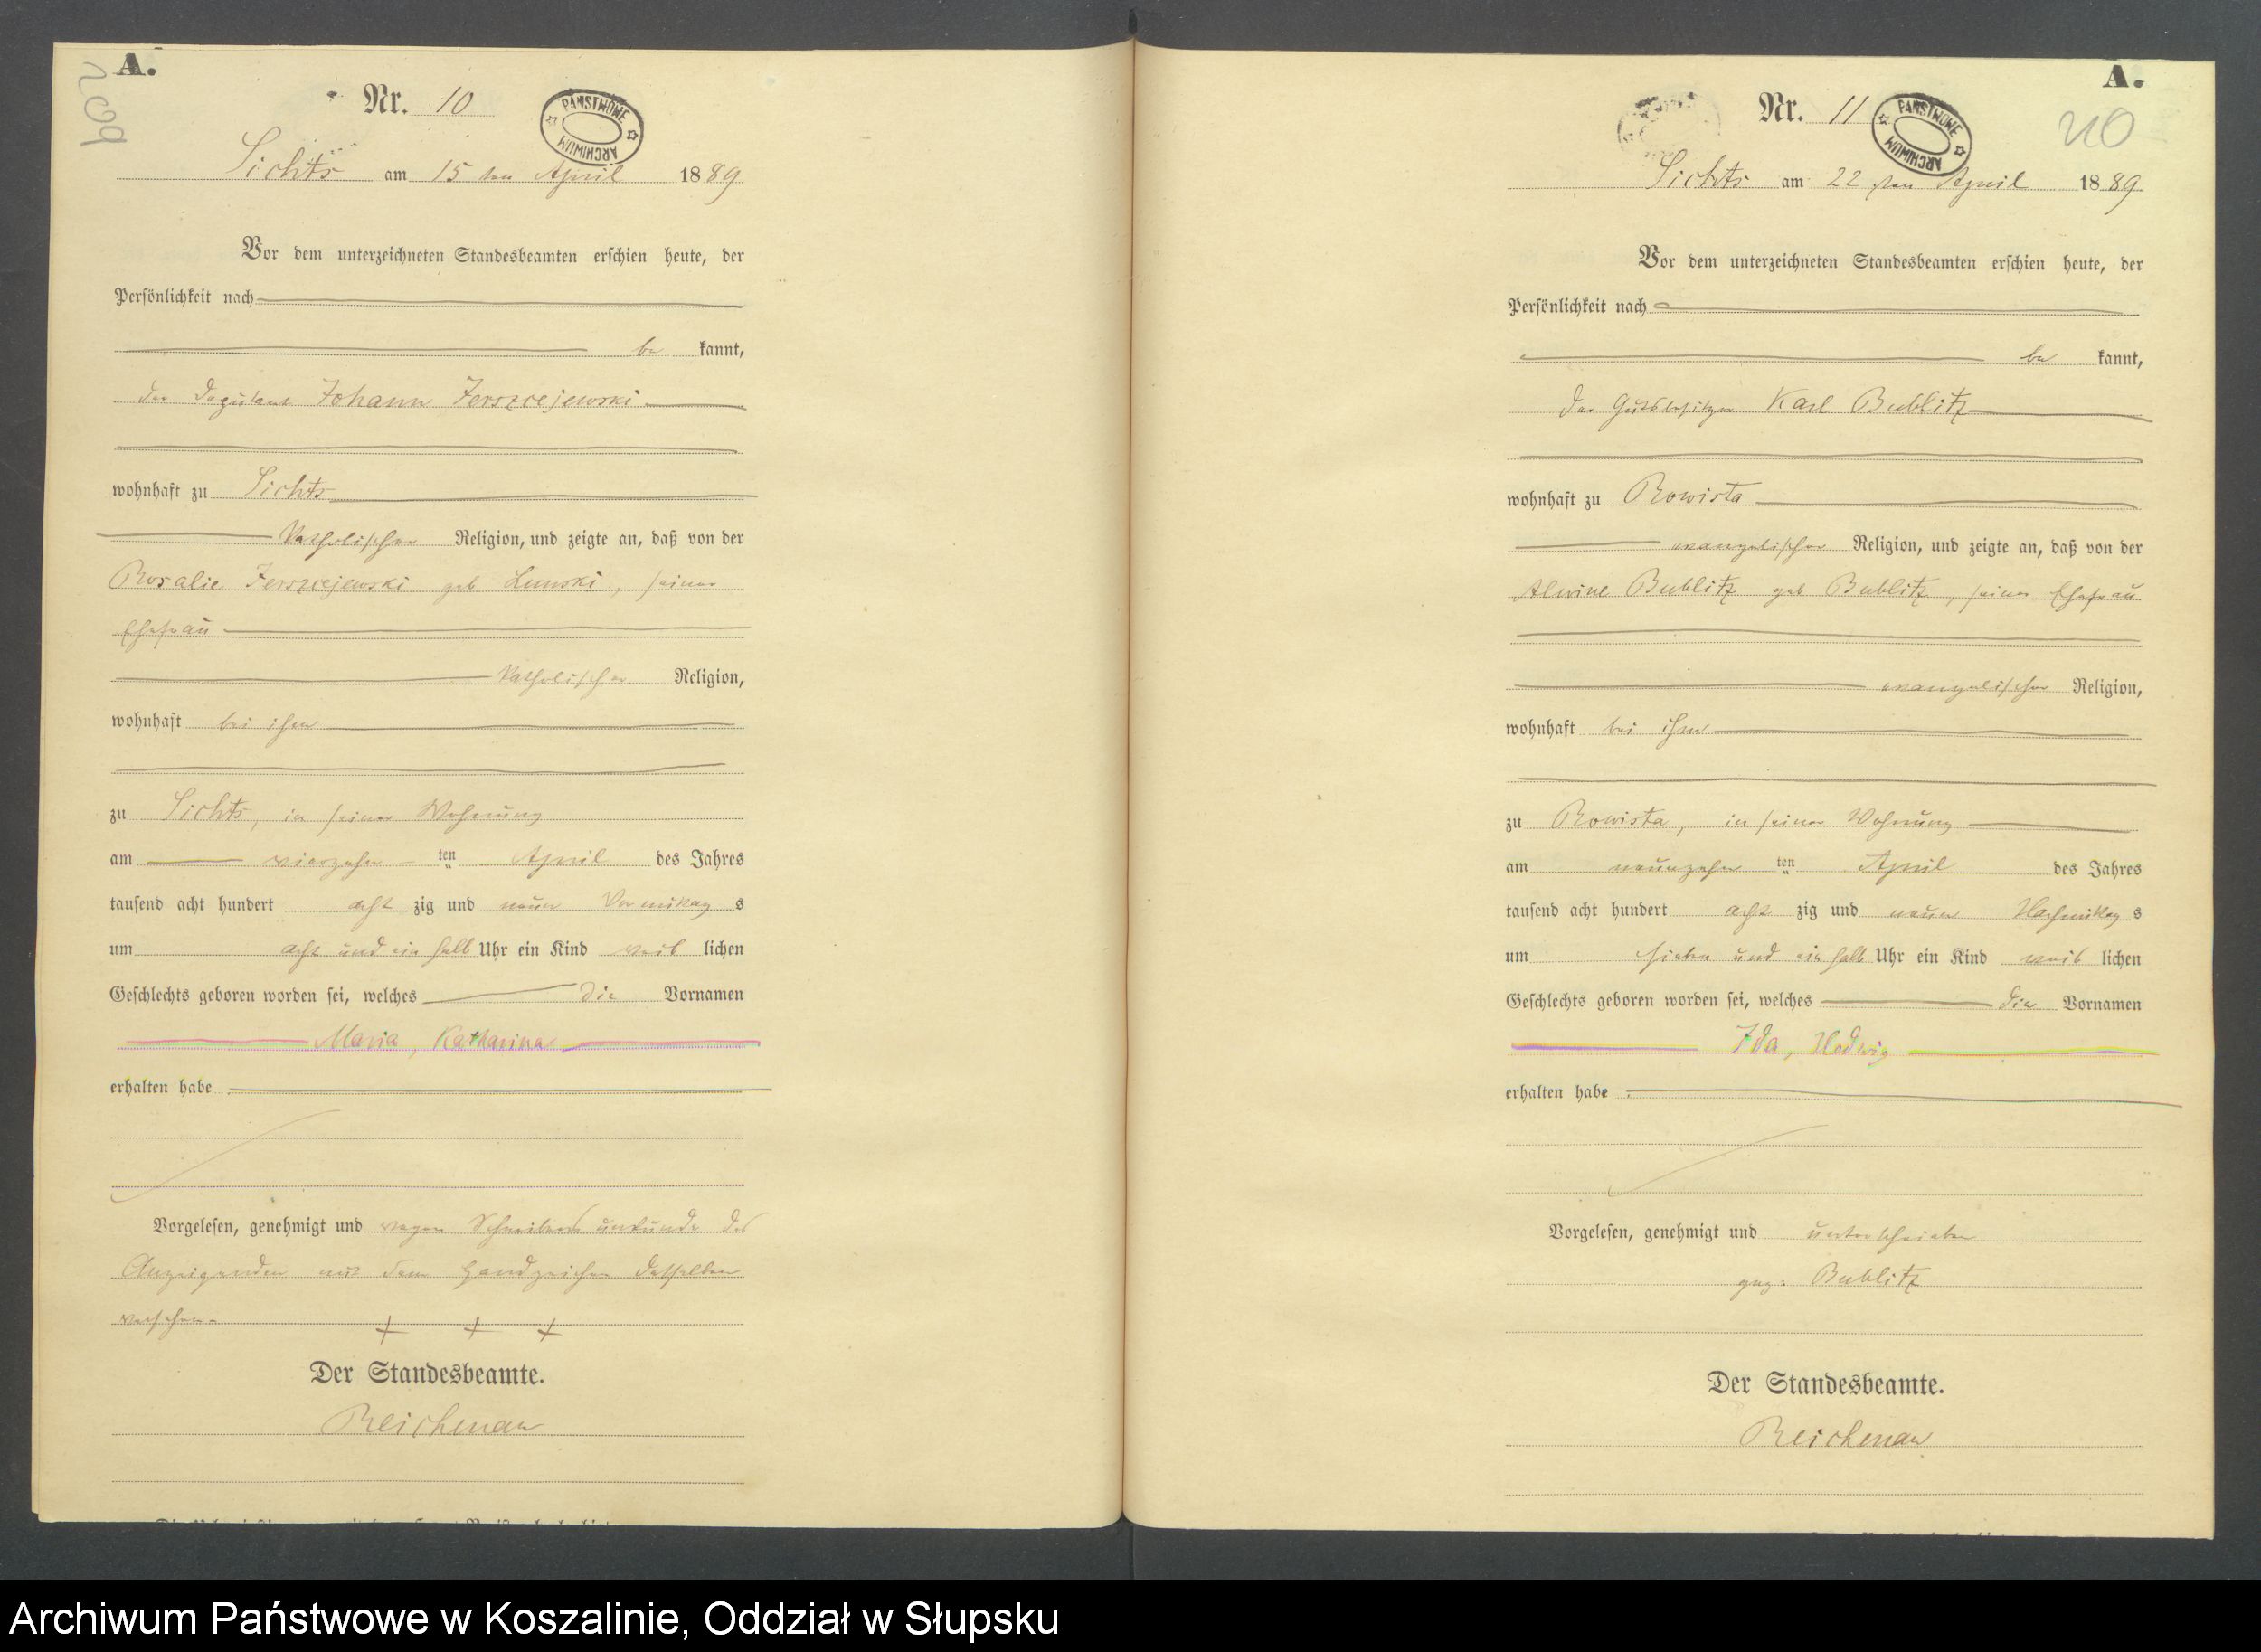 A.
209
Nr. 10
PAŃSTWOWE ARCHIWUM
Lichts am 15 ten April 1889
Vor dem unterzeichneten Standesbeamten erschien heute, der
Persönlichkeit nach
be kannt,
der Johann Jerszejewski
wohnhaft zu Lichts
katholischer Religion, und zeigte an, daß von der
Rosalie Jerszejewski geb , seiner
Ehefrau
katholischer Religion,
wohnhaft bei ihm
zu Lichts, in seiner Wohnung
am vierzehn ten April des Jahres
tausend acht hundert acht zig und neun Vormittag s
um acht und ein halb Uhr ein Kind weib lichen
Geschlechts geboren worden sei, welches die Vornamen
Maria, Katharina
erhalten habe
Vorgelesen, genehmigt und wegen Schreibensunkunde des
Anzeigenden mit dem Handzeichen desselben
versehen.
+ + +
Der Standesbeamte.
Reichenau
A.
210
Nr. 11
PAŃSTWOWE ARCHIWUM
Lichts am 22 ten April 1889
Vor dem unterzeichneten Standesbeamten erschien heute, der
Persönlichkeit nach
be kannt,
der Gutsbesitzer Karl Bublitz
wohnhaft zu Rowista
evangelischer Religion, und zeigte an, daß von der
Alwine Bublitz geb Bublitz, seiner Ehefrau
evangelischer Religion,
wohnhaft bei ihm
zu Rowista, in seiner Wohnung
am neunzehn ten April des Jahres
tausend acht hundert acht zig und neun Nachmittag s
um sieben und ein halb Uhr ein Kind weib lichen
Geschlechts geboren worden sei, welches die Vornamen
Ida, Hedwig
erhalten habe
Vorgelesen, genehmigt und unterschrieben
gez: Bublitz
Der Standesbeamte.
Reichenau
Archiwum Państwowe w Koszalinie, Oddział w Słupsku